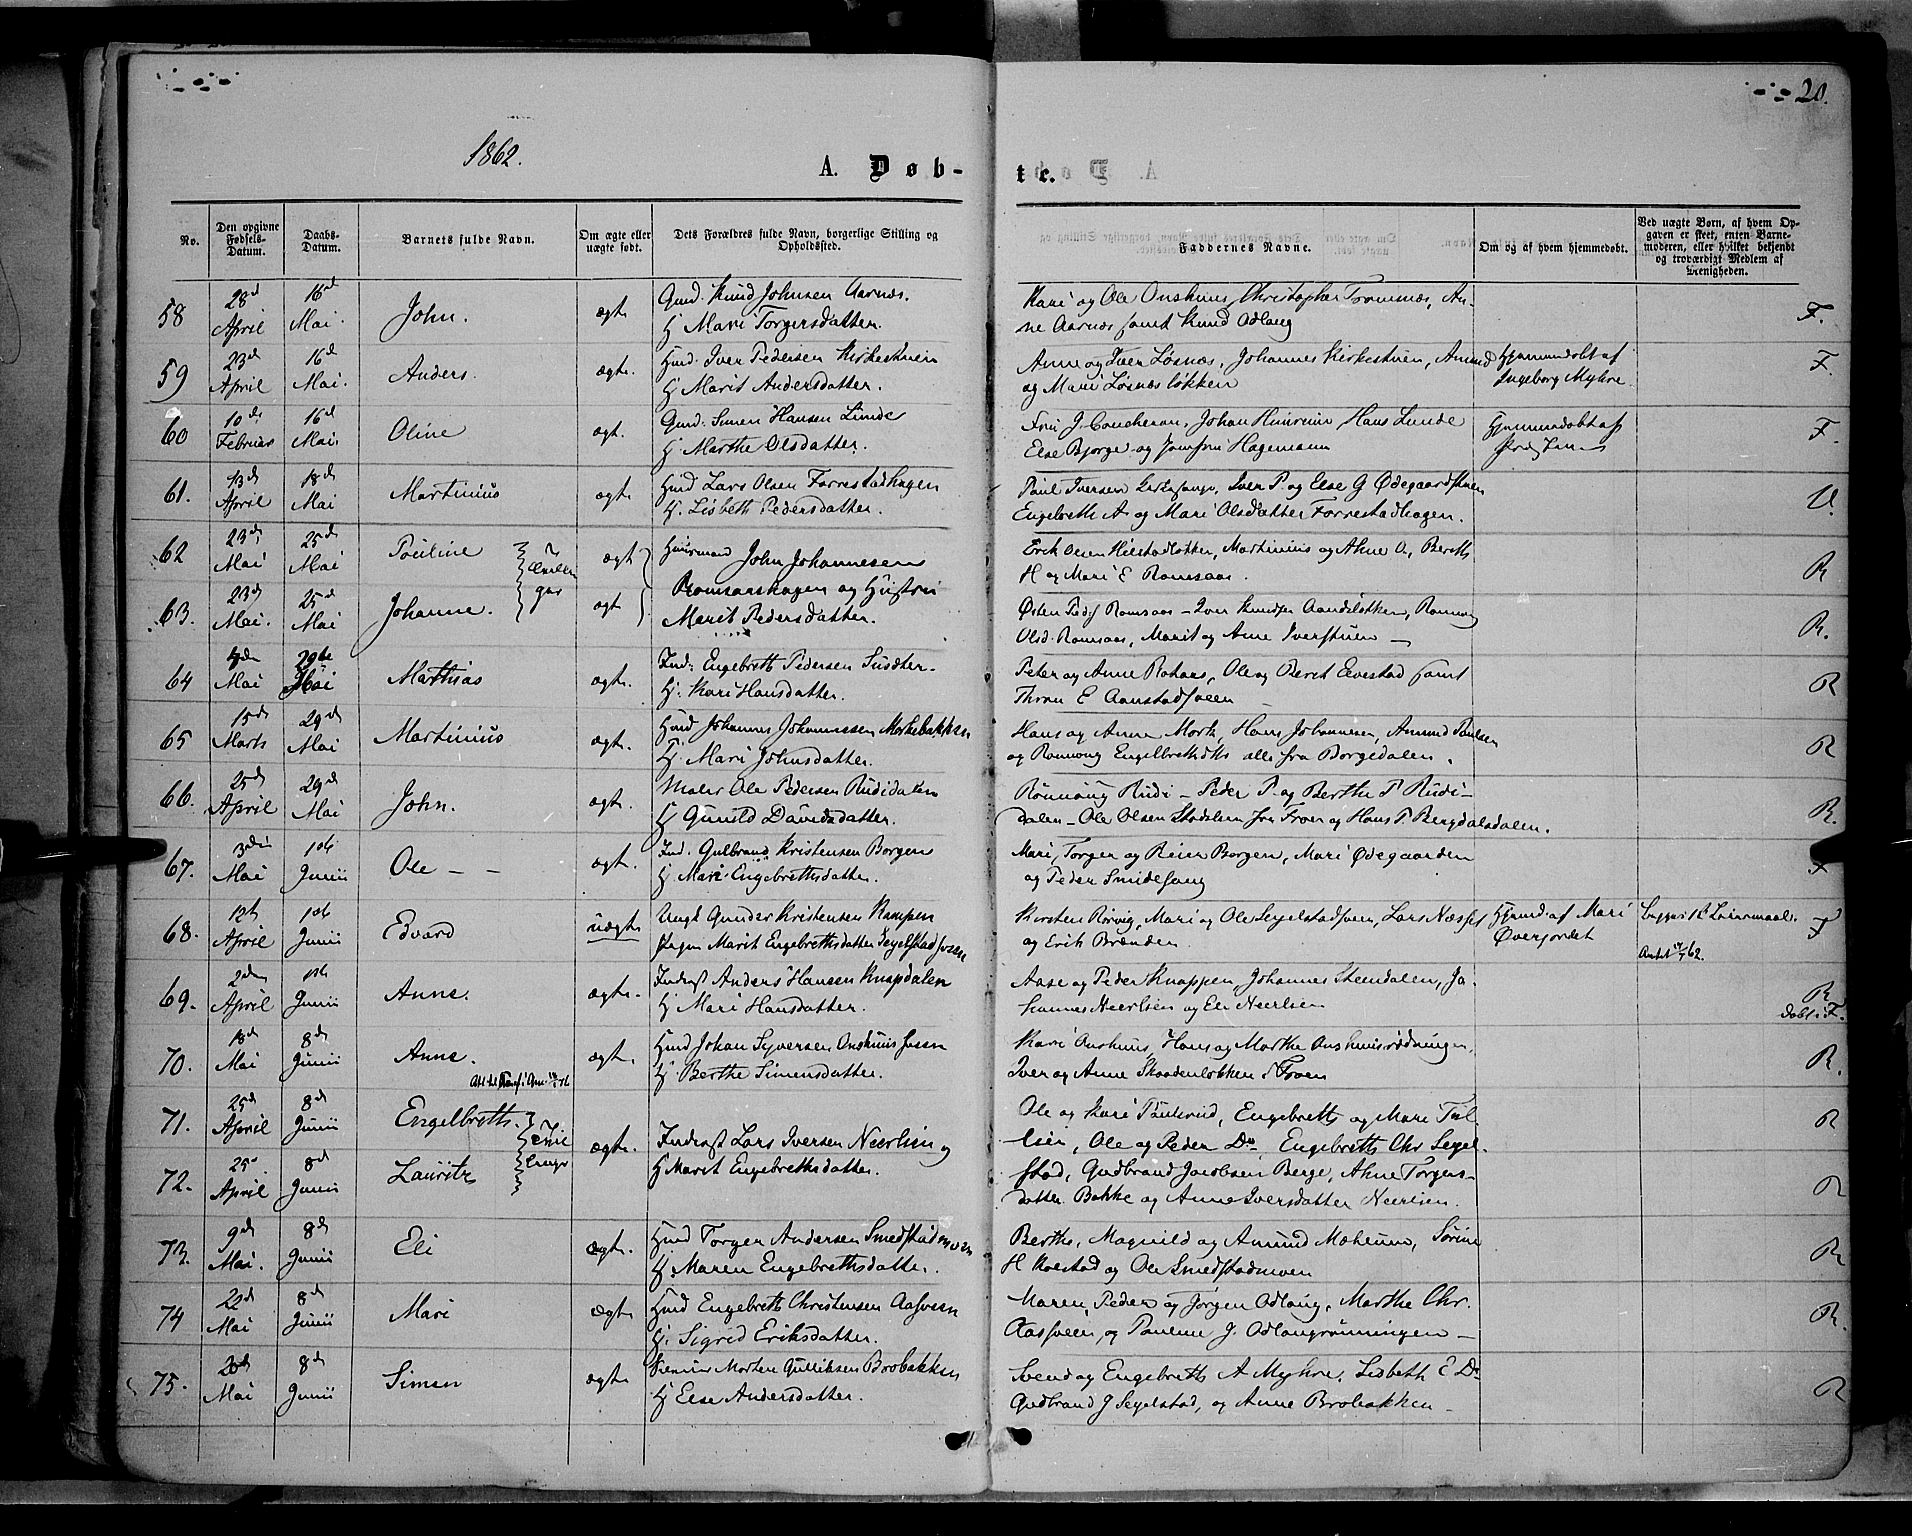 20.
1862.
A. Døb-
te.
No.
Den opgivne Fødsels-Datum.
Daabs-Datum.
Barnets fulde Navn.
Om ægte eller uægte født.
Dets Forældres fulde Navn, borgerlige Stilling og Opholdssted.
Faddernes Navne.
Om og af hvem hjemmedøbt.
Ved uægte Børn, af hvem Opgaven er skeet, enten Barnemoderen, eller hvilket bekjendt og troværdigt Medlem af Menigheden.
58 28d April 16d Mai. John. ægte
Gmd. Knud Johnsen Aarnæs.
Hj Mari Torgersdatter.
Kari og Ole Onshuus, Christopher Tromnæs, An-
ne Aarnæs samt Knud Odlaug
F.
59 23d April 16d Mai. Anders. ægte.
Hmd. Iver Pedersen Kirkestuen
Hj Marit Andersdatter.
Anne og Iver Løsnæs, Johannes Kirkestuen, Amund
og Mari Løsnæsløkken
Hjemmedøbt af
Ingeborg Myhre.
F.
60 10de Februar 16d Mai. Oline ægt.
Gmd. Simen Hansen Lunde
Hj Marthe Olsdatter.
Else Bjørge og Jomfru Hagemann
Hjemmedøbt af
F.
61. 13d April 18d Mai Martinius ægte
Hmd Lars Olsen Forrestadhagen
Hj. Lisbeth Pedersdatter.
Paul Iversen Kirkesanger, Iver P. og Else G Ødegaardstuen
Engebreth A og Mari Olsdatter Forrestadhagen.
U.
62 23d Mai 25d Mai Pauline ægte
Huusmand John Johannesen
Romsaashagen og Hustru
Erik Olsen Hilstadløkken, Martinius og Ahne O, Berethe
H og Mari E Romsaas.
R
63. 23d Mai. 25d Mai Johanne. ægte
Marit Pedersdatter.
Østen Peds Romsaas - Iver Knudsen Aandsløkken, Rønnaug
Olsd. Romsaas, Marit og Anne Iverstuen -
R.
64 Mai 29de Mai Mathias ægte.
Ind: Engebreth Pedersen Susæter.
Hj. Kari Hansdatter.
Peter og Anne Rohaas, Ole og Beret Elvestad samt
Thron E Aanstadsveen
R
65 15d Marts 29d Mai Martinius ægte.
Hmd Johannes Johannessen Morkebakken
Hj. Mari Johnsdatter.
Hans og Anne Mork, Hans Johannesen, Amund Paulsen
og Rønnoug Engelbrethdtr alle fra Borgedalen.
R
66. 25d April 29d Mai John. ægte.
Maler Ole Pedersen Rudidalen
Hj Gunild Davidsdatter.
Rønnoug Rudi - Peder P. og Berthe P Rudi-
dalen - Ole Olsen Stadslien fra Froen og Hans P. Bergdalsdalen.
R.
67. 3die Mai 1ste Junii Ole - - ægt.
Ind. Gulbrand Kristensen Borgen
Hj Mari Engebrethsdatter.
Mari, Torger og Reier Borgen, Mari Ødegaarden
og Peder Smidesang
F
68. 12te April 1ste Junii Edvard uægte
Ungk Gunder Kristensen Kampen
Pigen Marit Engebrethsdatter Segelstadsveen
Kirsten Rørvig, Mari og Ole Segelstadsveen, Lars Næsset
og Erik Brænden.
Hjemd. af Mari
Øverjordet
Begges 1ste Leiermaal.
F
69. 2den April 1ste Junii Anne. ægte.
Inderst Anders Hansen Knapdalen
Hj Mari Hansdatter.
Aase og Peder Knappen, Johannes Steendalen, Jo-
hannes Neerlien og Eli Neerlien
R
døbt i F.
70. 18d Mai 8d Junii Anne. ægte.
Hmd Johan Syversen Onshuus sveen
Hj. Berthe Simensdatter.
Kari Onshuus, Hans og Marthe Onshuusrødningen,
Iver og Anne Skaadenløkken i Froen
R.
71. 25d April 8d Junii Engelbreth. ægte.
Inderst Lars Iversen Neerlien og
Hj Marit Engebrethsdatter.
Ole og Kari Paulsrud, Engebreth og Mari Tul-
lien, Ole og Peder Do, Engebreth Chr Segel-
R
72. 25d April 8d Junii Lauritz
stad, Gudbrand Jacobsen Berge, Ahne Torgers-
datter Bakke og Anne Iversdatter Neerlien.
R
73. 9d Mai. 8d Junii Eli ægte.
Hmd Torger Andersen Smedstadmoen
Hj. Maren Engebrethsdatter.
Berthe, Magnild og Amund Mæhlum, Sørine
H Kolstad og Ole Smedstadmoen
R
74 22d Mai 8d Junii Mari ægte
Hmd Engebreth Christensen Aasveen
Hj. Sigrid Eriksdatter.
Maren, Peder og Jørgen Odlaug, Marthe Chr.
Aassveen, og Pauline J. Odlaugrønningen -
R.
75. 20d Mai 8d Junii Simen ægte
Morten Gulliksen Brobakken
Hj Else Andersdatter.
Svend og Engebreth A Myhre, Lisbeth E Do
Gudbrand J Segelstad, og Anne Brobakken -
R